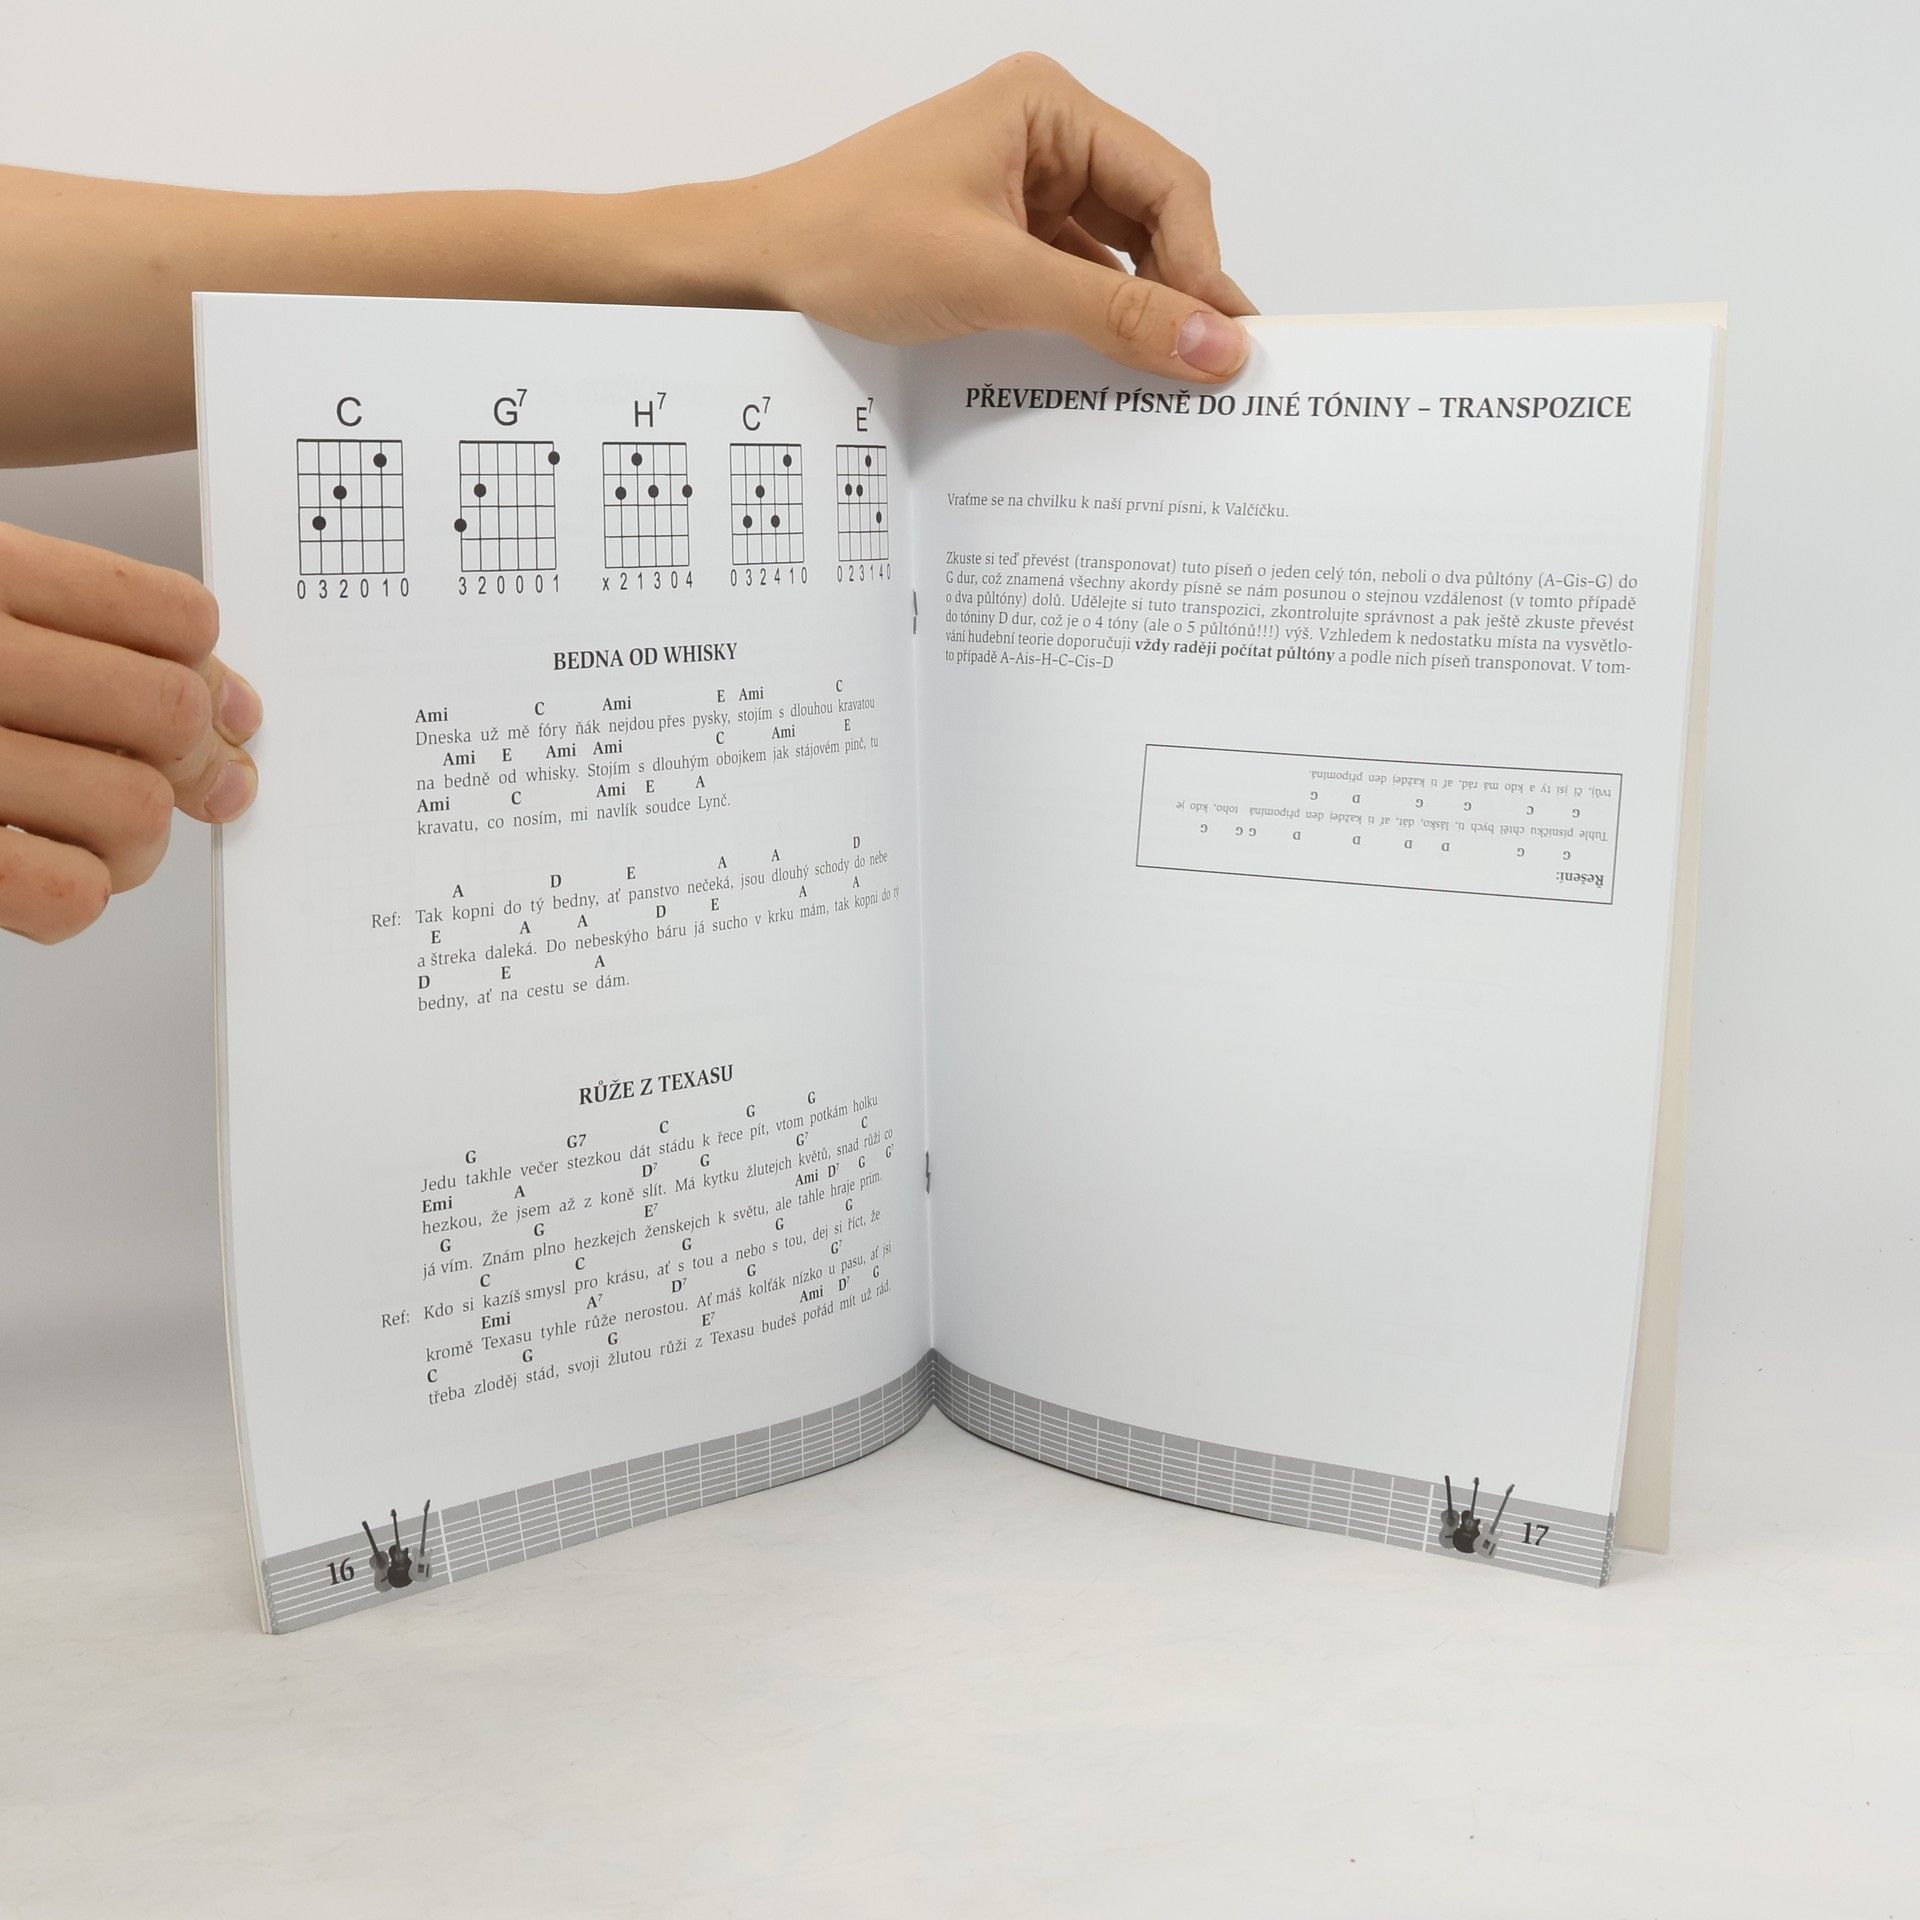 C G7 H7 C7 E7
032010 320001 x21304 032410 023140
BEDNA OD WHISKY
Ami C Ami E Ami C
Dneska už mě fóry ňák nejdou přes pysky, stojím s dlouhou kravatou
Ami E Ami Ami C Ami E
na bedně od whisky. Stojím s dlouhým obojkem jak stájovém pinč, tu
Ami C Ami E A
kravatu, co nosím, mi navlík soudce Lynč.
A D E A A D
Ref: Tak kopni do tý bedny, ať panstvo nečeká, jsou dlouhý schody do nebe
E A A D E A A
a štreka daleká. Do nebeskýho báru já sucho v krku mám, tak kopni do tý
D E A
bedny, ať na cestu se dám.
RŮŽE Z TEXASU
G G7 C G G
Jedu takhle večer stezkou dát stádu k řece pít, vtom potkám holku
Emi A D7 G G7 C
hezkou, že jsem až z koně slít. Má kytku žlutejch květů, snad růží co
G G E7 Ami D7 G G7
já vím. Znám plno hezkejch ženskejch k světu, ale tahle hraje prim.
C C G G G
Ref: Kdo si kazíš smysl pro krásu, ať s tou a nebo s tou, dej si říct, že
Emi A7 D7 G G7
kromě Texasu tyhle růže nerostou. Ať máš kolťák nízko u pasu, ať jsi
C G G E7 Ami D7 G
třeba zloděj stád, svoji žlutou růži z Texasu budeš pořád mít už rád.
16
PŘEVEDENÍ PÍSNĚ DO JINÉ TÓNINY – TRANSPOZICE
Vraťme se na chvilku k naší první písni, k Valčíčku.
Zkuste si teď převést (transponovat) tuto píseň o jeden celý tón, neboli o dva půltóny (A–Gis–G) do
G dur, což znamená všechny akordy písně se nám posunou o stejnou vzdálenost (v tomto případě
o dva půltóny) dolů. Udělejte si tuto transpozici, zkontrolujte správnost a pak ještě zkuste převést
do tóniny D dur, což je o 4 tóny (ale o 5 půltónů!!!) výš. Vzhledem k nedostatku místa na vysvětlo-
vání hudební teorie doporučuji vždy raději počítat půltóny a podle nich píseň transponovat. V tom-
to případě A–Ais–H–C–Cis–D
Řešení:
G G D D D D G G G
Tuhle písničku chtěl bych ti, lásko, dát, ať ti každej den připomíná toho, kdo je
G C G G D G
tvůj, čí jsi ty a kdo má rád, ať ti každej den připomíná.
17